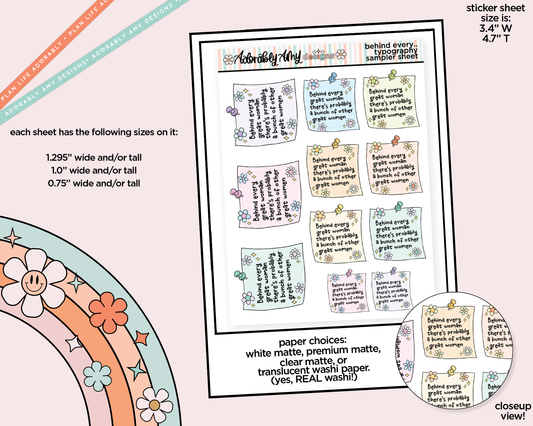 PLAN LIFE ADORABLY • PLAN LIFE ADORABLY •
ADORABLY AMY DESIGNS • ADORABLY AMY DESIGNS •
sticker sheet
size is:
3.4” W
4.7” T
each sheet has the following sizes on it:
1.295” wide and/or tall
1.0” wide and/or tall
0.75” wide and/or tall
Adorably Amy designs
behind every..
typography
sampler sheet
Behind every
great woman
there's probably
a bunch of other
great women
Behind every
great woman
there's probably
a bunch of other
great women
Behind every
great woman
there's probably
a bunch of other
great women
Behind every
great woman
there's probably
a bunch of other
great women
Behind every
great woman
there's probably
a bunch of other
great women
Behind every
great woman
there's probably
a bunch of other
great women
Behind every
great woman
there's probably
a bunch of other
great women
Behind every
great woman
there's probably
a bunch of other
great women
Behind every
great woman
there's probably
a bunch of other
great women
Behind every
great woman
there's probably
a bunch of other
great women
Behind every
great woman
there's probably
a bunch of other
great women
paper choices:
white matte, premium matte,
clear matte, or
translucent washi paper.
(yes, REAL washi!)
Behind every
great woman
there's probably
a bunch of other
great women
Behind every
great woman
closeup
view!